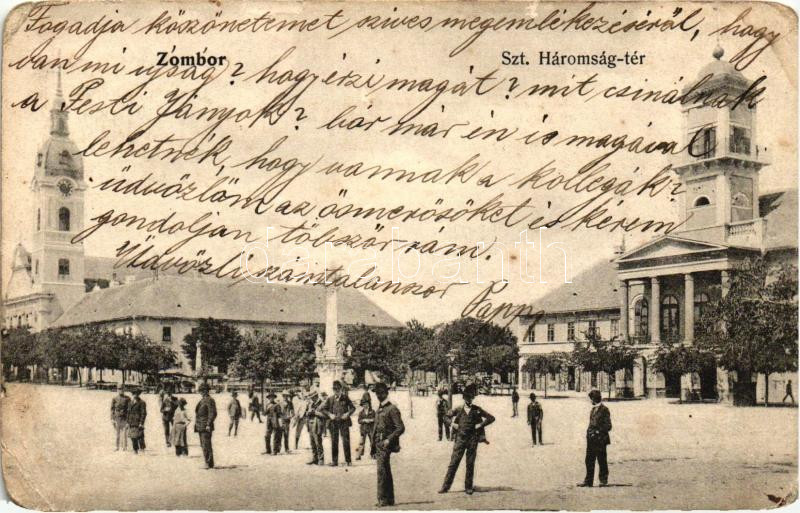 Fogadja köszönetemet szives megemlékezéséről, hogy
van mi ujság? hogy érzi magát? mit csinálnak
Zombor
Szt. Háromság-tér
a Pesti lányok? bár már én is magával
lehetnék, hogy vannak a kollegák?
üdvözlöm az ösmerősöket is kérem
gondoljan többször rám.
Üdvözli számtalanszor Papp